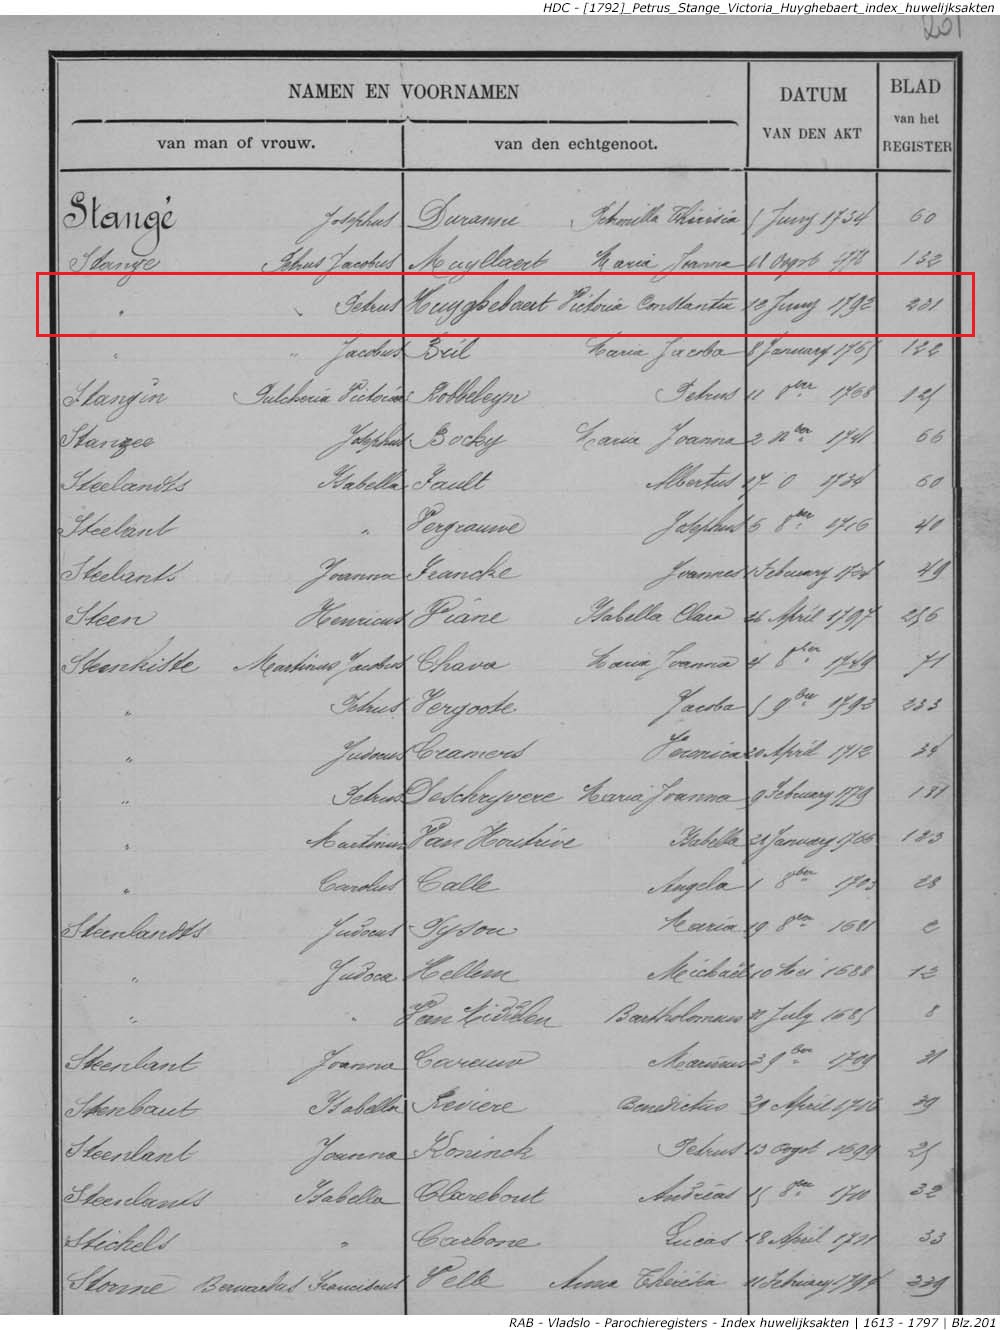 HDC - [1792]_Petrus_Stange_Victoria_Huyghebaert_index_huwelijksakten
201
NAMEN EN VOORNAMEN
DATUM
VAN DEN AKT
BLAD
van het
REGISTER
van man of vrouw.
van den echtgenoot.
Stangé Josephus Duranne Petronilla Theresia 5 Juny 1734 60
Stange Petrus Jacobus Muyllaert Maria Joanna 11 Oogst 1778 132
" " Petrus Huyghebaert Victoria Constantia 12 Juny 1792 231
" " Jacobus Beil Maria Jacoba 8 January 1765 122
Stangin Pulcheria Victoria Robbeleyn Petrus 11 8ber 1768 125
Stangee Josephus Bocky Maria Joanna 2 Xber 1741 66
Steelandts Isabella Fault Albertus 17 0 1734 60
Steelant " Vergrauwe Josephus 6 8ber 1716 40
Steelants Joanna Francke Joannes 1 February 1724 49
Steen Henricus Piane Isabella Clara 26 April 1797 256
Steenkiste Martinus Jacobus Chava Maria Joanna 4 8ber 1749 71
" Petrus Vergoote Jacoba 5 9ber 1793 233
" Judocus Cramers Veronica 20 April 1712 34
" Petrus Deschryvere Maria Joanna 9 February 1779 181
" Martinus Van Houtrive Isabella 21 January 1766 123
" Carolus Calle Angela 1 8ber 1703 28
Steenlandts Judocus Tyson Maria 19 8ber 1681 2
" Judoca Hellem Michaël 10 Mei 1688 12
" " Van Middelen Bartholomeus 31 July 1685 8
Steenlant Joanna Careuw Marinus 3 9ber 1709 31
Steenbaut Isabella Reviere Benedictus 29 April 1716 39
Steenlant Joanna Koninck Petrus 13 Oogst 1699 25
Steenlants Isabella Clarebout Andréas 15 8ber 1710 32
Stichels " Carbone Lucas 18 April 1711 33
Storme Bernardus Franciscus Velle Anna Theresia 11 February 1794 239
RAB - Vladslo - Parochieregisters - Index huwelijksakten | 1613 - 1797 | Blz.201